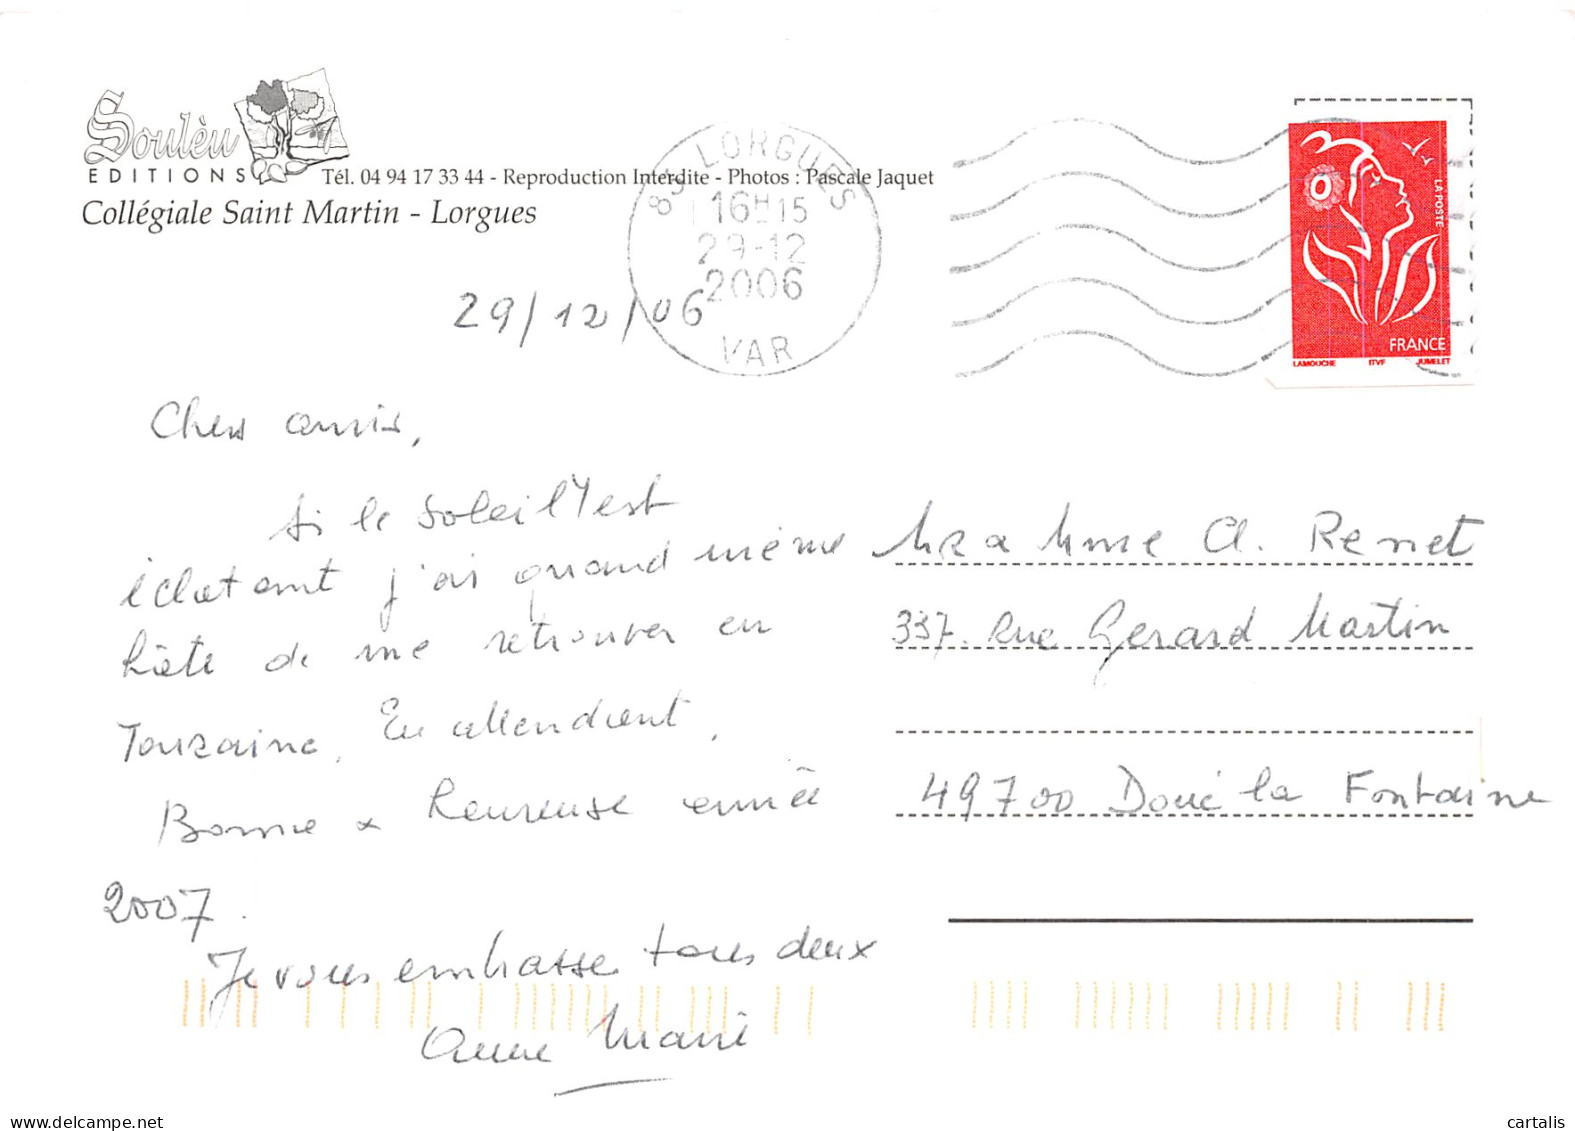 Soulèu
EDITIONS
Tél. 04 94 17 33 44 - Reproduction Interdite - Photos : Pascale Jaquet
Collégiale Saint Martin - Lorgues
83 LORGUES
16H15
29-12
2006
VAR
LA POSTE
FRANCE
LAMOUCHE ITVF JUMELET
29/12/06
Chers amis,
Si le soleil est
éclatant j'ai quand même
hâte de me retrouver en
Touraine. En attendant,
Bonne & heureuse année
2007.
Je vous embrasse tous deux
Anne Marie
Mr & Mme Cl. Renet
337 Rue Gerard Martin
49700 Doué la Fontaine
delcampe.net
cartalis